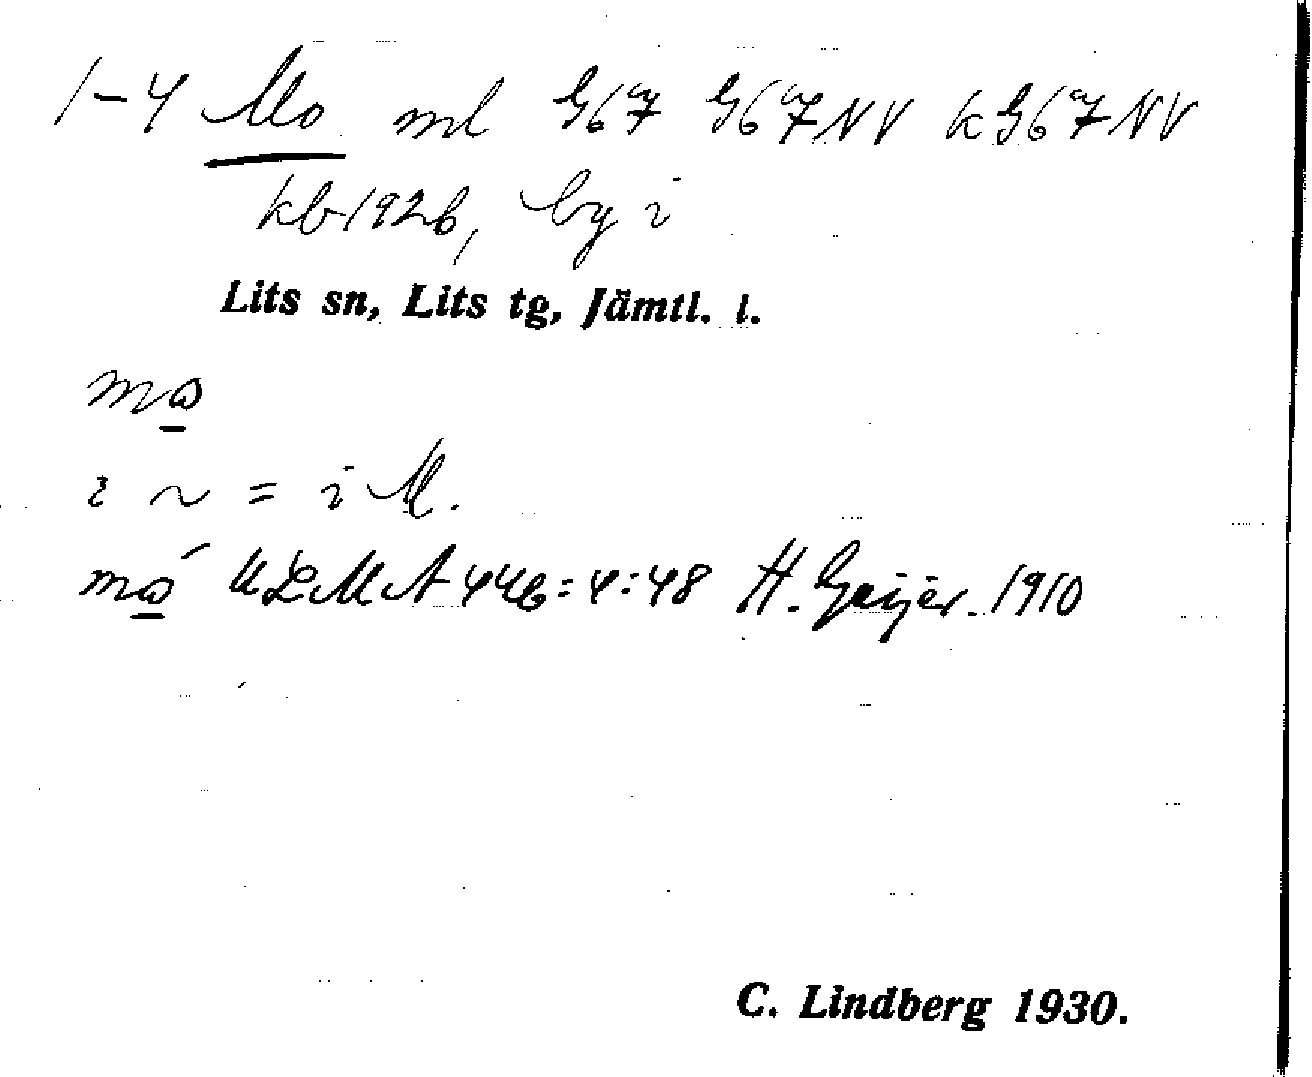 1-4 Mo ml G67 G67NV kG67NV
kb 1926, by i
Lits sn, Lits tg, Jämtl. l.
i ~ = i M.
ULMA 446:4:48 H. Geijer. 1910
C. Lindberg 1930.